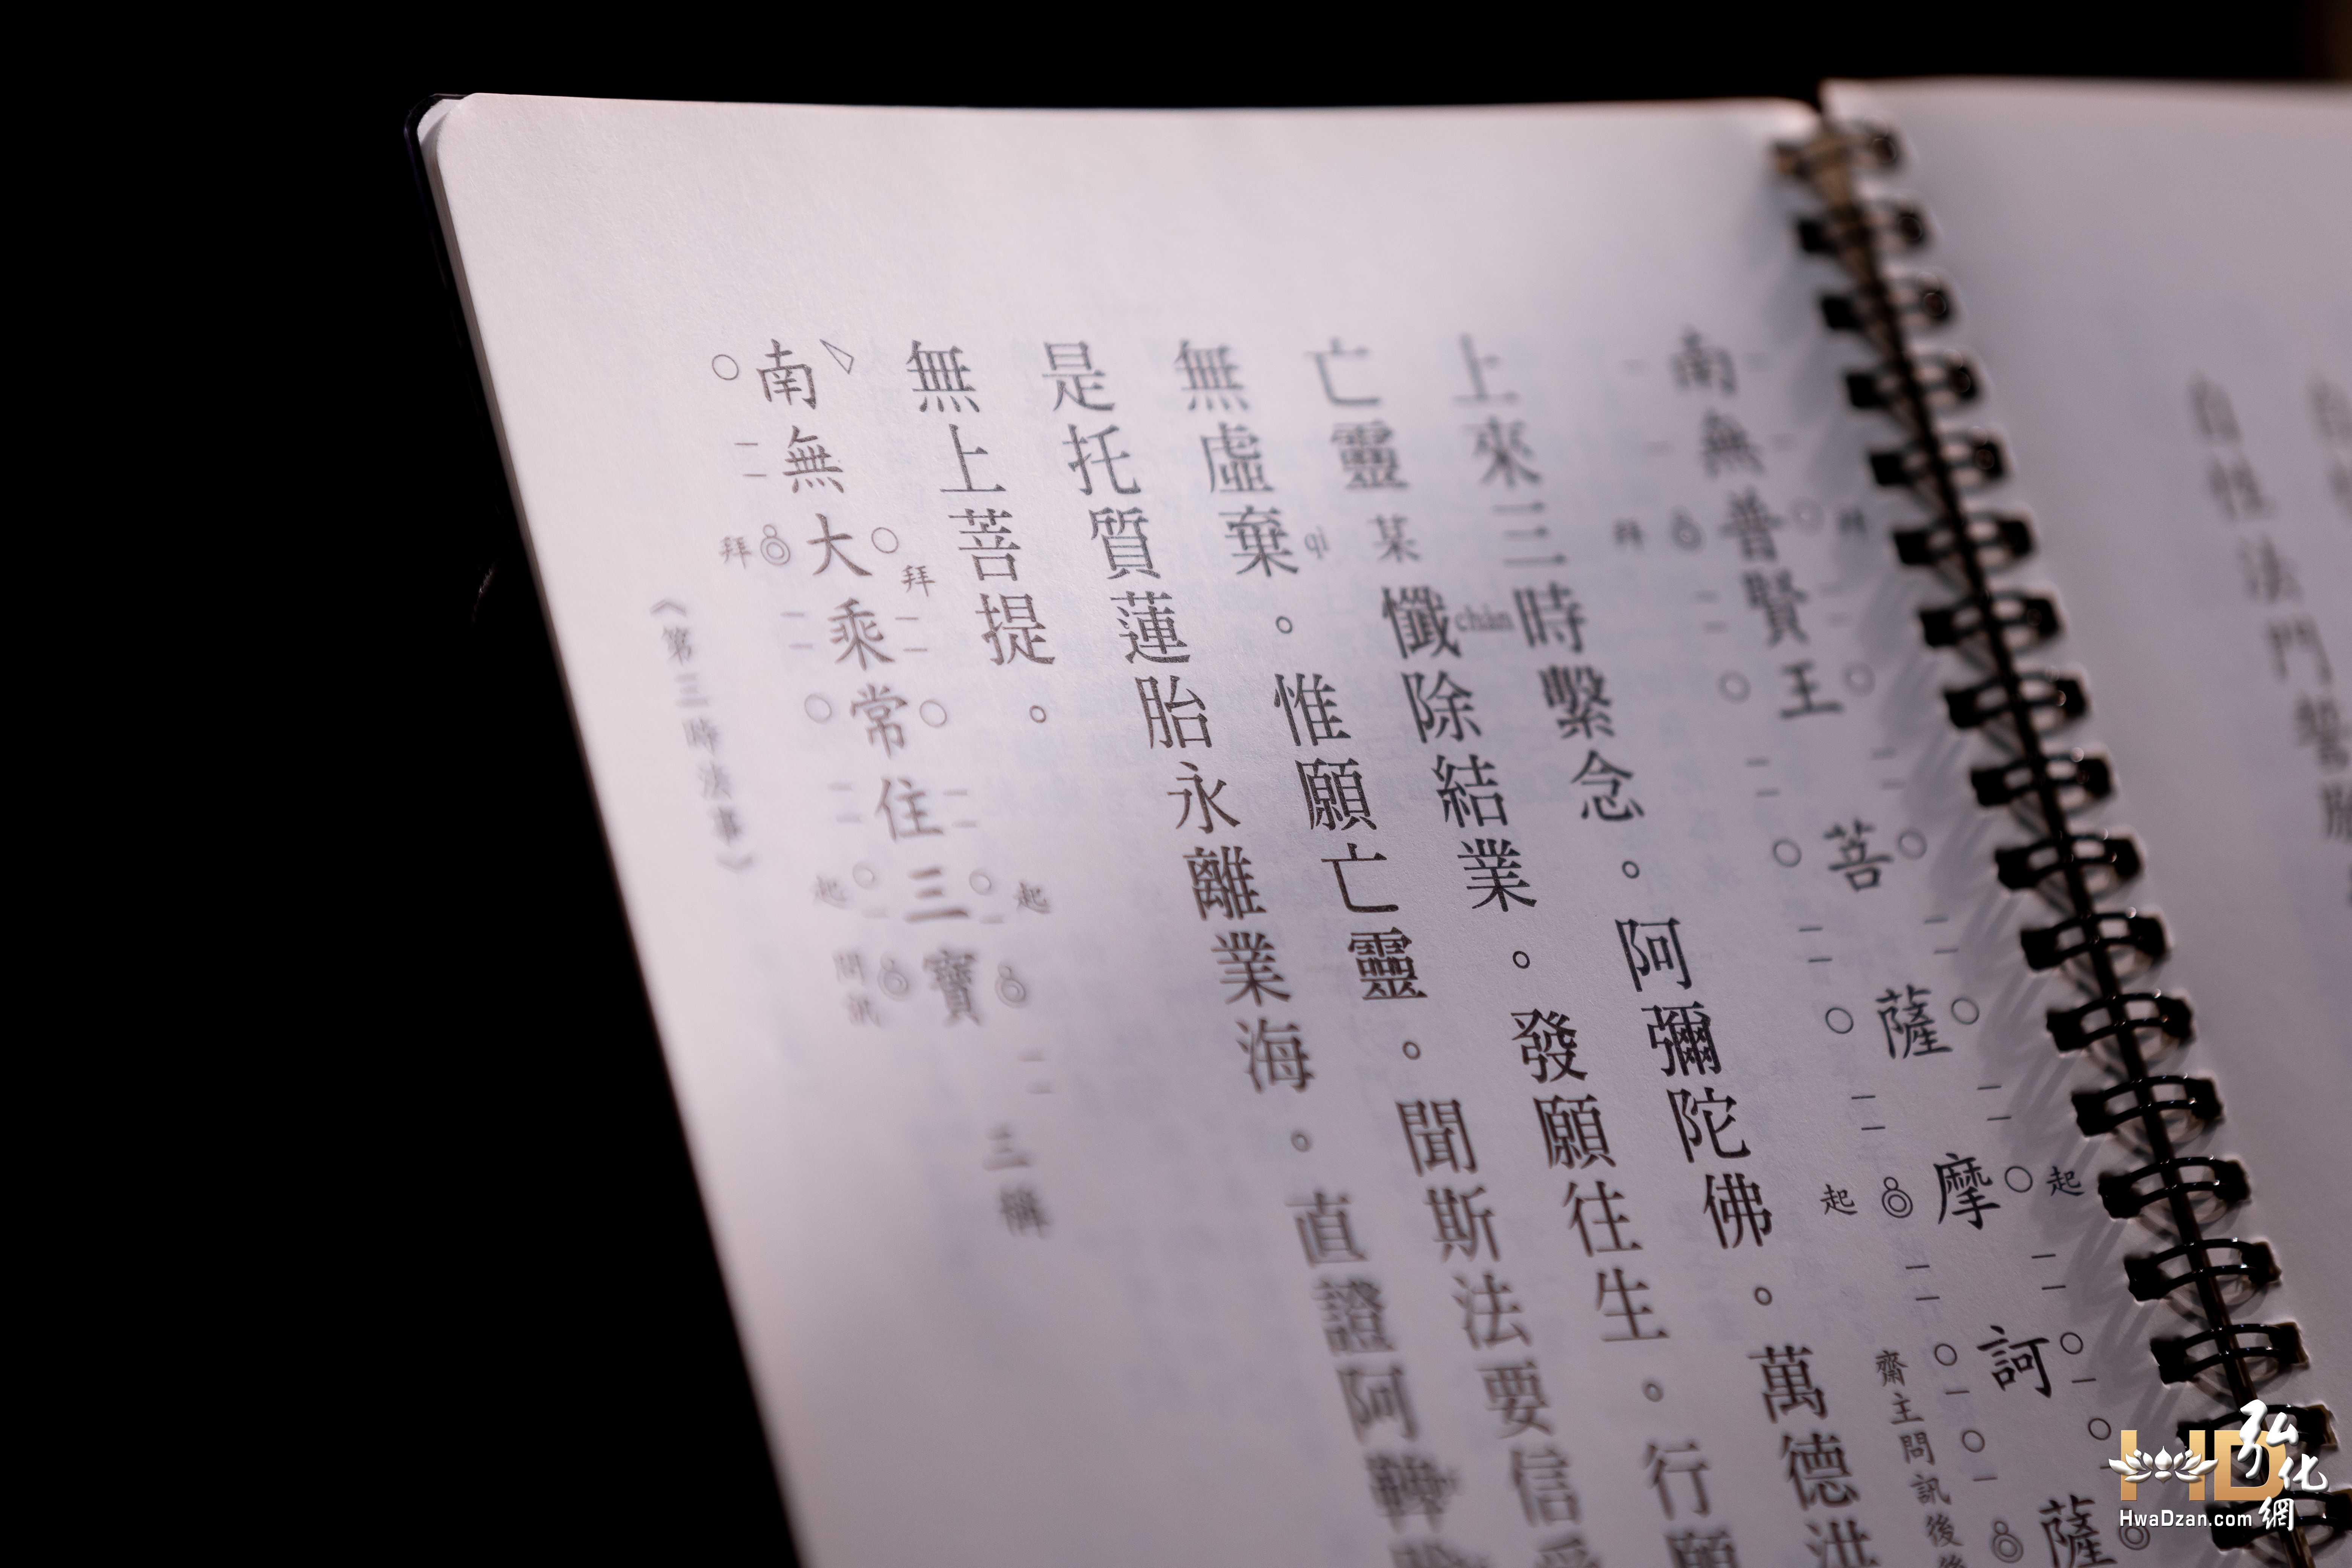 自性法門誓願
南無普賢王菩薩摩訶薩
拜 起
拜 起 齋主問訊後
上來三時繫念。阿彌陀佛。萬德洪
chàn
亡靈某懺除結業。發願往生。行願
qì
無虛棄。惟願亡靈。聞斯法要信受
是托質蓮胎永離業海。直證阿鞞
無上菩提。
拜 起
南無大乘常住三寶 三稱
拜 起 問訊
《第三時法事》
HD 弘化網
HwaDzan.com